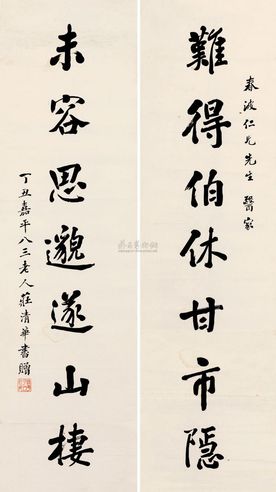 春波仁兄先生 醫家
難得伯休甘市隱
未容思邈遂山棲
丁丑嘉平八三老人莊清華書贈